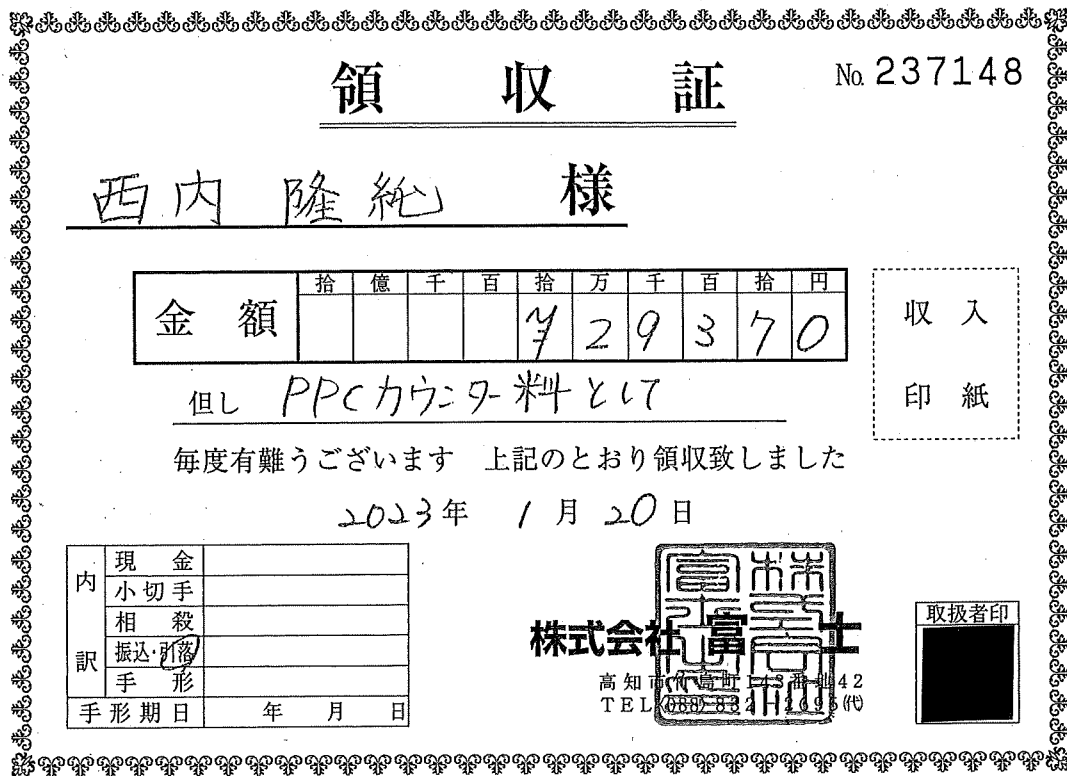 領収証
No. 237148
西内 隆純 様
拾 億 千 百 拾 万 千 百 拾 円
金額 ¥ 2 9 3 7 0
収入
印紙
但し PPCカウンター料として
毎度有難うございます 上記のとおり領収致しました
2023年 1月 20日
内訳
現金
小切手
相殺
振込・引落
手形
手形期日 年 月 日
株式会社 富士
高知市 島町143番地42
TEL(088)832 2695(代)
取扱者印